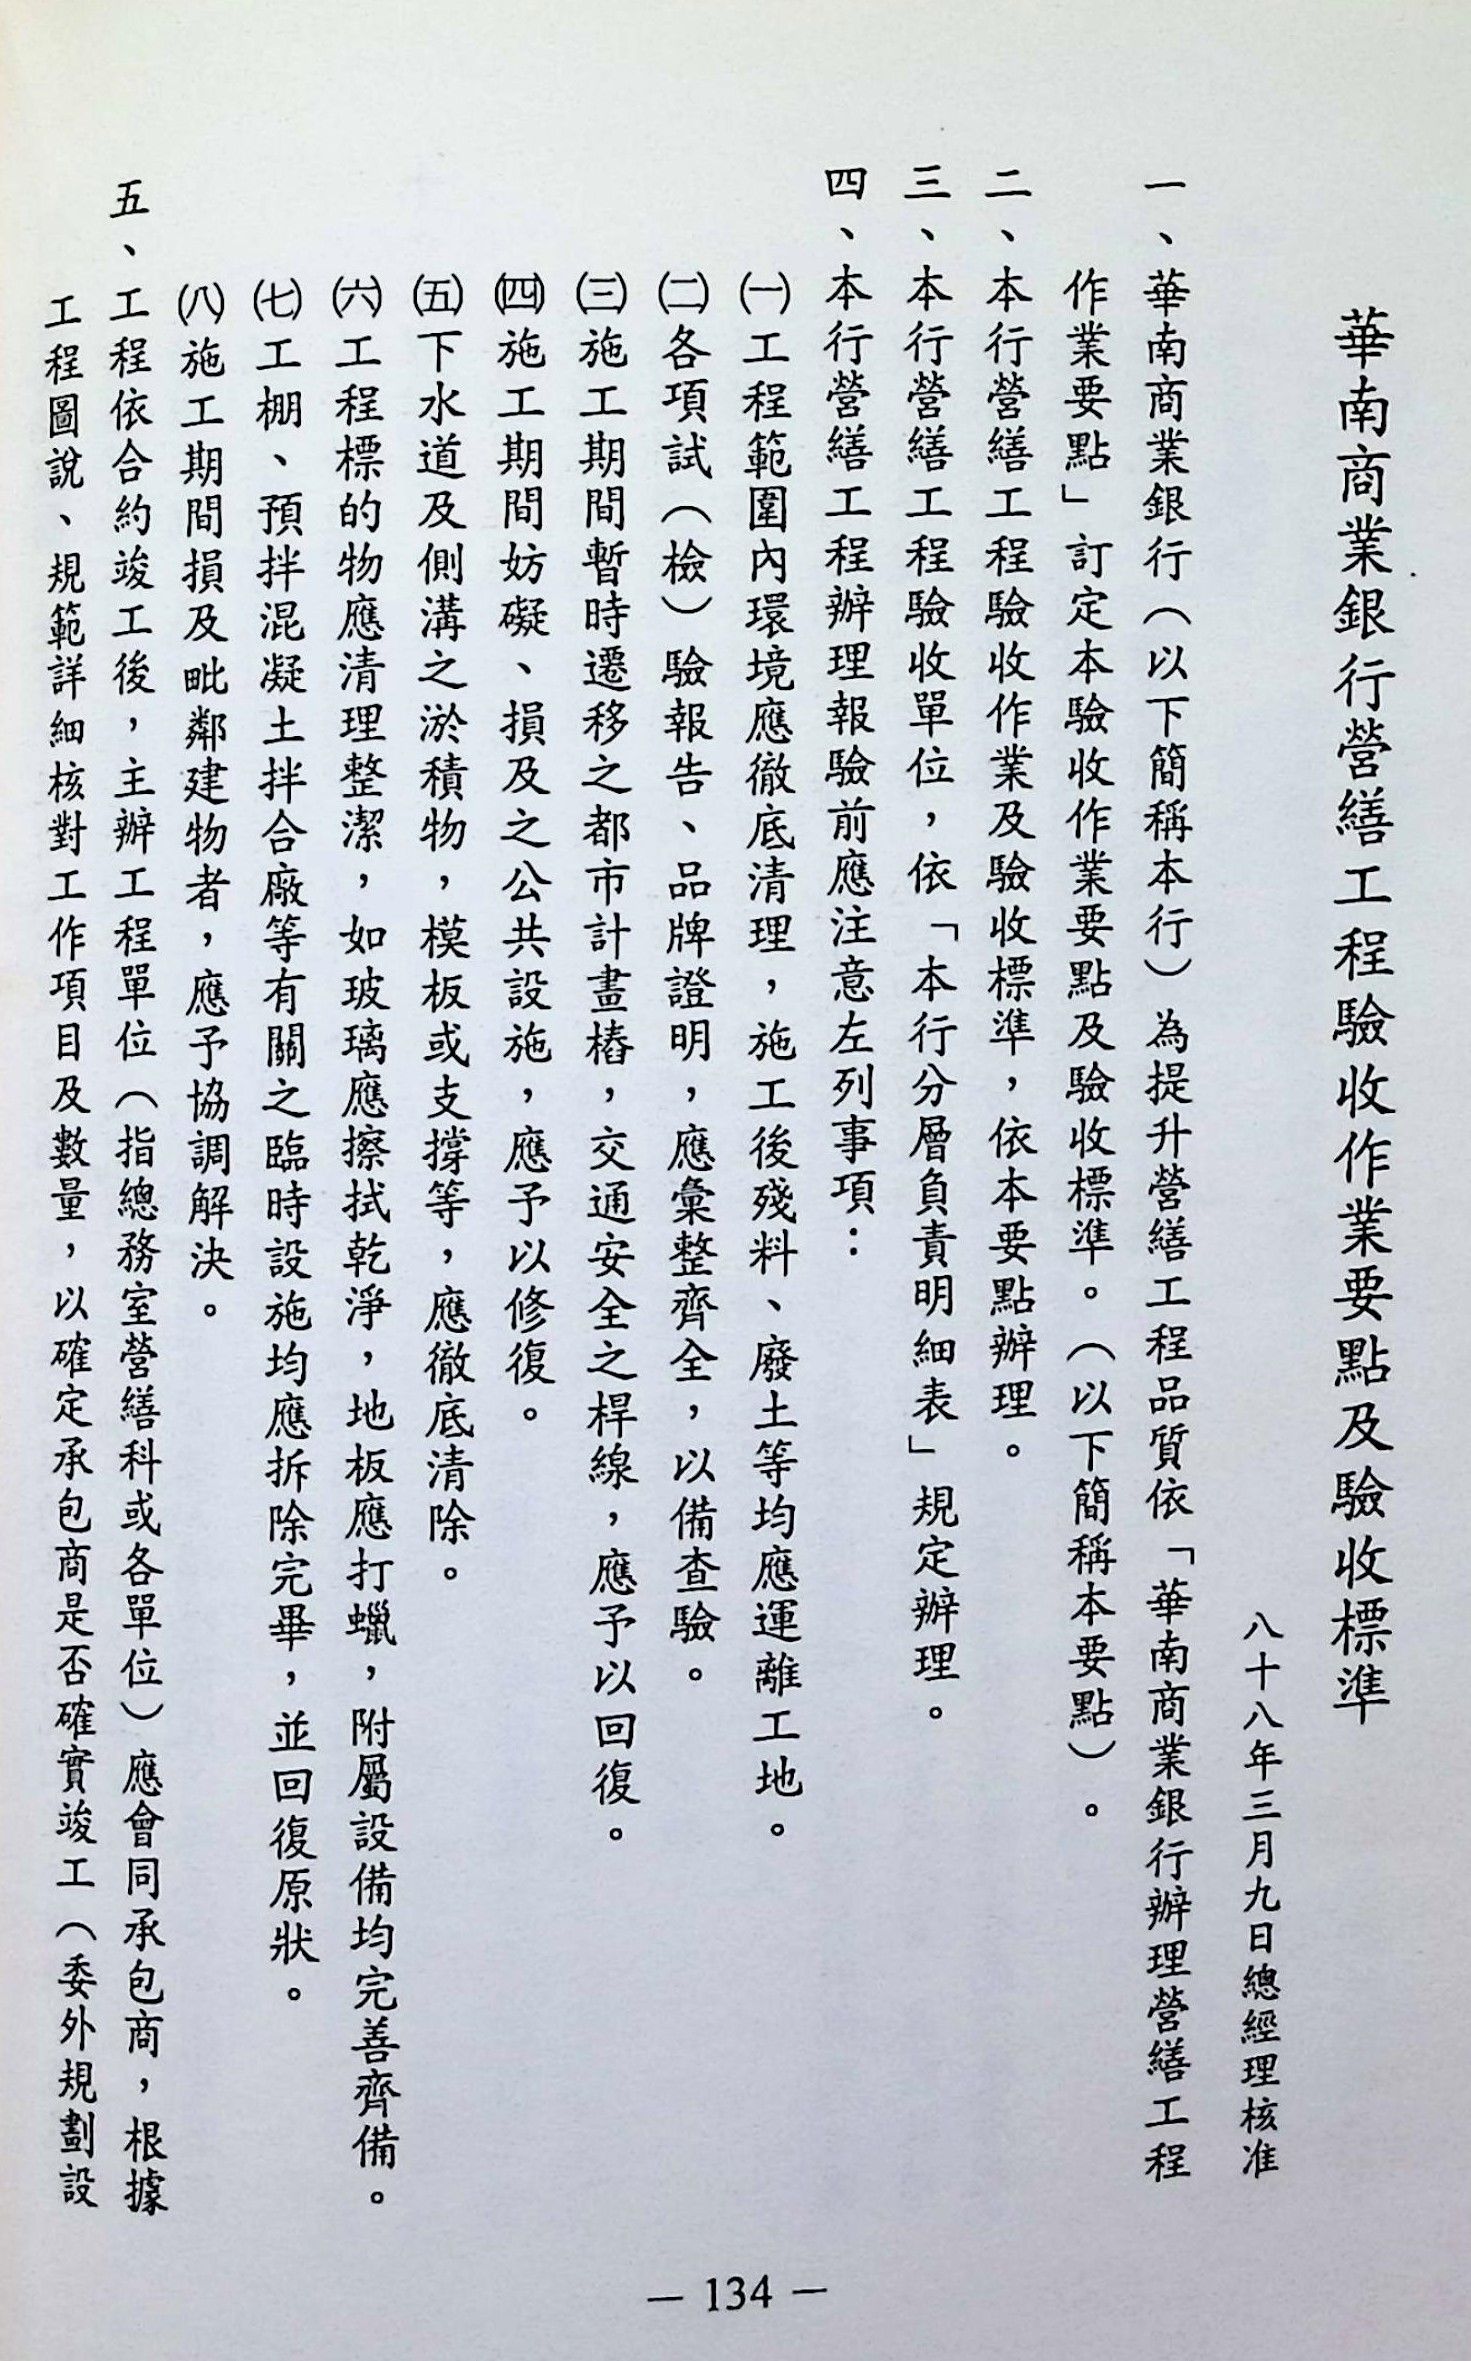 華南商業銀行營繕工程驗收作業要點及驗收標準
八十八年三月九日總經理核准
一、華南商業銀行（以下簡稱本行）為提升營繕工程品質依「華南商業銀行辦理營繕工程
作業要點」訂定本驗收作業要點及驗收標準。（以下簡稱本要點）。
二、本行營繕工程驗收作業及驗收標準，依本要點辦理。
三、本行營繕工程驗收單位，依「本行分層負責明細表」規定辦理。
四、本行營繕工程辦理報驗前應注意左列事項：
㈠工程範圍內環境應徹底清理，施工後殘料、廢土等均應運離工地。
㈡各項試（檢）驗報告、品牌證明，應彙整齊全，以備查驗。
㈢施工期間暫時遷移之都市計畫樁，交通安全之桿線，應予以回復。
㈣施工期間妨礙、損及之公共設施，應予以修復。
㈤下水道及側溝之淤積物，模板或支撐等，應徹底清除。
㈥工程標的物應清理整潔，如玻璃應擦拭乾淨，地板應打蠟，附屬設備均完善齊備。
㈦工棚、預拌混凝土拌合廠等有關之臨時設施均應拆除完畢，並回復原狀。
㈧施工期間損及毗鄰建物者，應予協調解決。
五、工程依合約竣工後，主辦工程單位（指總務室營繕科或各單位）應會同承包商，根據
工程圖說、規範詳細核對工作項目及數量，以確定承包商是否確實竣工（委外規劃設
— 134 —